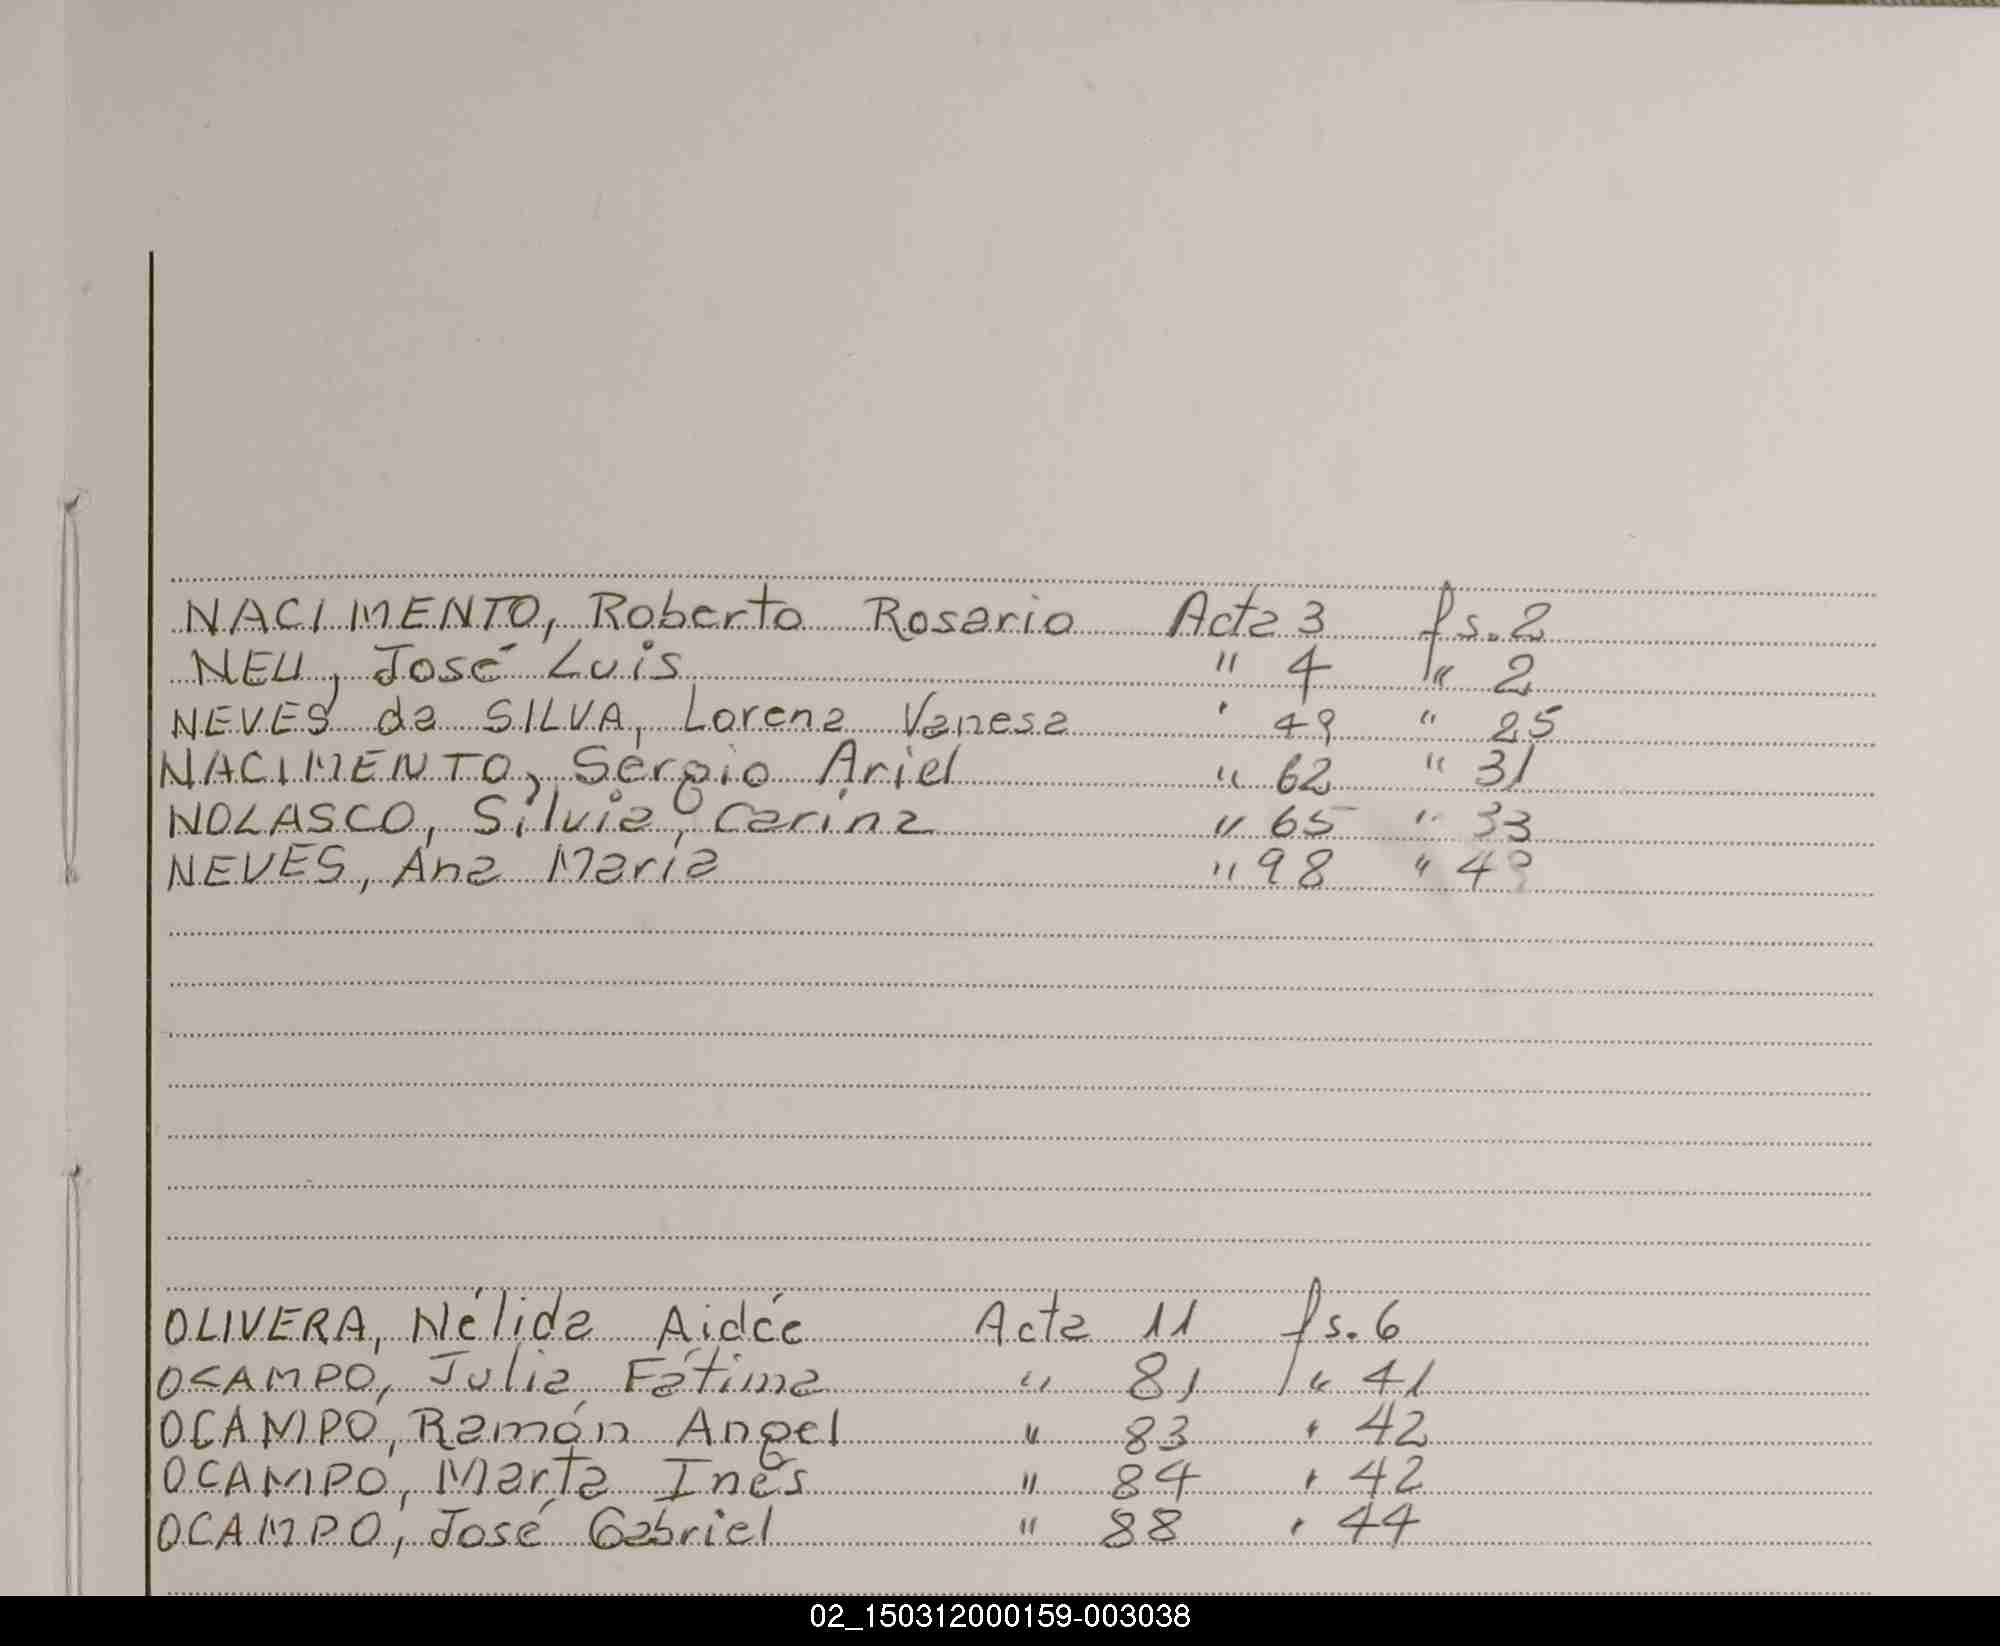 NACIMENTO, Roberto Rosario Acta 3 fs. 2
NEU, José Luis " 4 " 2
NEVES da SILVA, Lorena Vanesa ' 49 " 25
NACIMENTO, Sergio Ariel " 62 " 31
NOLASCO, Silvia Carina " 65 " 33
NEVES, Ana María " 98 " 49
OLIVERA, Nélida Aidée Acta 11 fs. 6
OCAMPO, Julia Fátima " 81 " 41
OCAMPO, Ramón Angel " 83 ' 42
OCAMPO, Marta Inés " 84 ' 42
OCAMPO, José Gabriel " 88 ' 44
02_150312000159-003038